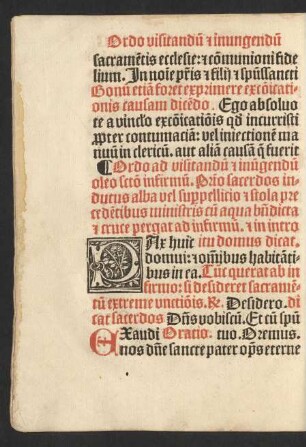 Ordo visitandū ⁊ inungendū
sacramētis ecclesie: ⁊ cōmunioni fide
lium. In noīe pr̄is ⁊ filij ⁊ spūssancti
Bonū etiā foret exprimere excōīcati-
onis causam dicēdo. Ego absoluo
te a vinclo excōīcatiōis quā incurristi
ꝓpter contumaciā: vel iniectionē ma
nuū in clericū. aut aliā causā q̄ fuerit
¶ Ordo ad visitandū ⁊ inūgendū
oleo sctō infirmū. Prīo sacerdos in-
dutus alba vel suppellicio ⁊ stola pre
cedētibus ministris cū aqua bn̄dicta
⁊ cruce pergat ad infirmū. ⁊ in intro
PAx huic itu domus dicat.
domui: ⁊ oīmibus habitāti-
bus in ea. Tūc querat ab in
firmo: si desideret sacramē-
tū extreme unctiōis. R̄. Desidero. di
cat sacerdos Dn̄s vobiscū. Et cū spū
EXaudi Oratio. tuo. Oremus.
nos dn̄e sancte pater oīps eterne